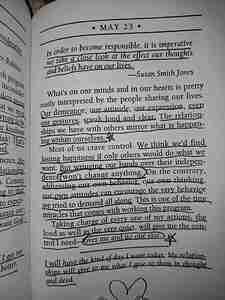 • MAY 23 •
In order to become responsible, it is imperative
we take a close look at the effect our thoughts
and beliefs have on our lives.
—Susan Smith Jones
What's on our minds and in our hearts is pretty
easily interpreted by the people sharing our lives.
Our demeanor, our actions, our expression, even
our gestures, speak loud and clear. The relation-
ships we have with others mirror what is happen-
ing within ourselves.
Most of us crave control. We think we'd find
lasting happiness if only others would do what we
want. But winning our hands over their indepen-
dence won't change anything. On the contrary,
addressing our own behavior, our own thinking,
our own attitudes can encourage the very behavior
we tried to demand all along. This is one of the tiny
miracles that comes with working this program.
Taking charge of every one of my actions, the
loud as well as the very quiet, will give me the con-
trol I need—over me and no one else.
I will have the kind of day I want today. My relation-
ships will give to me what I give to them in thought
and deed.